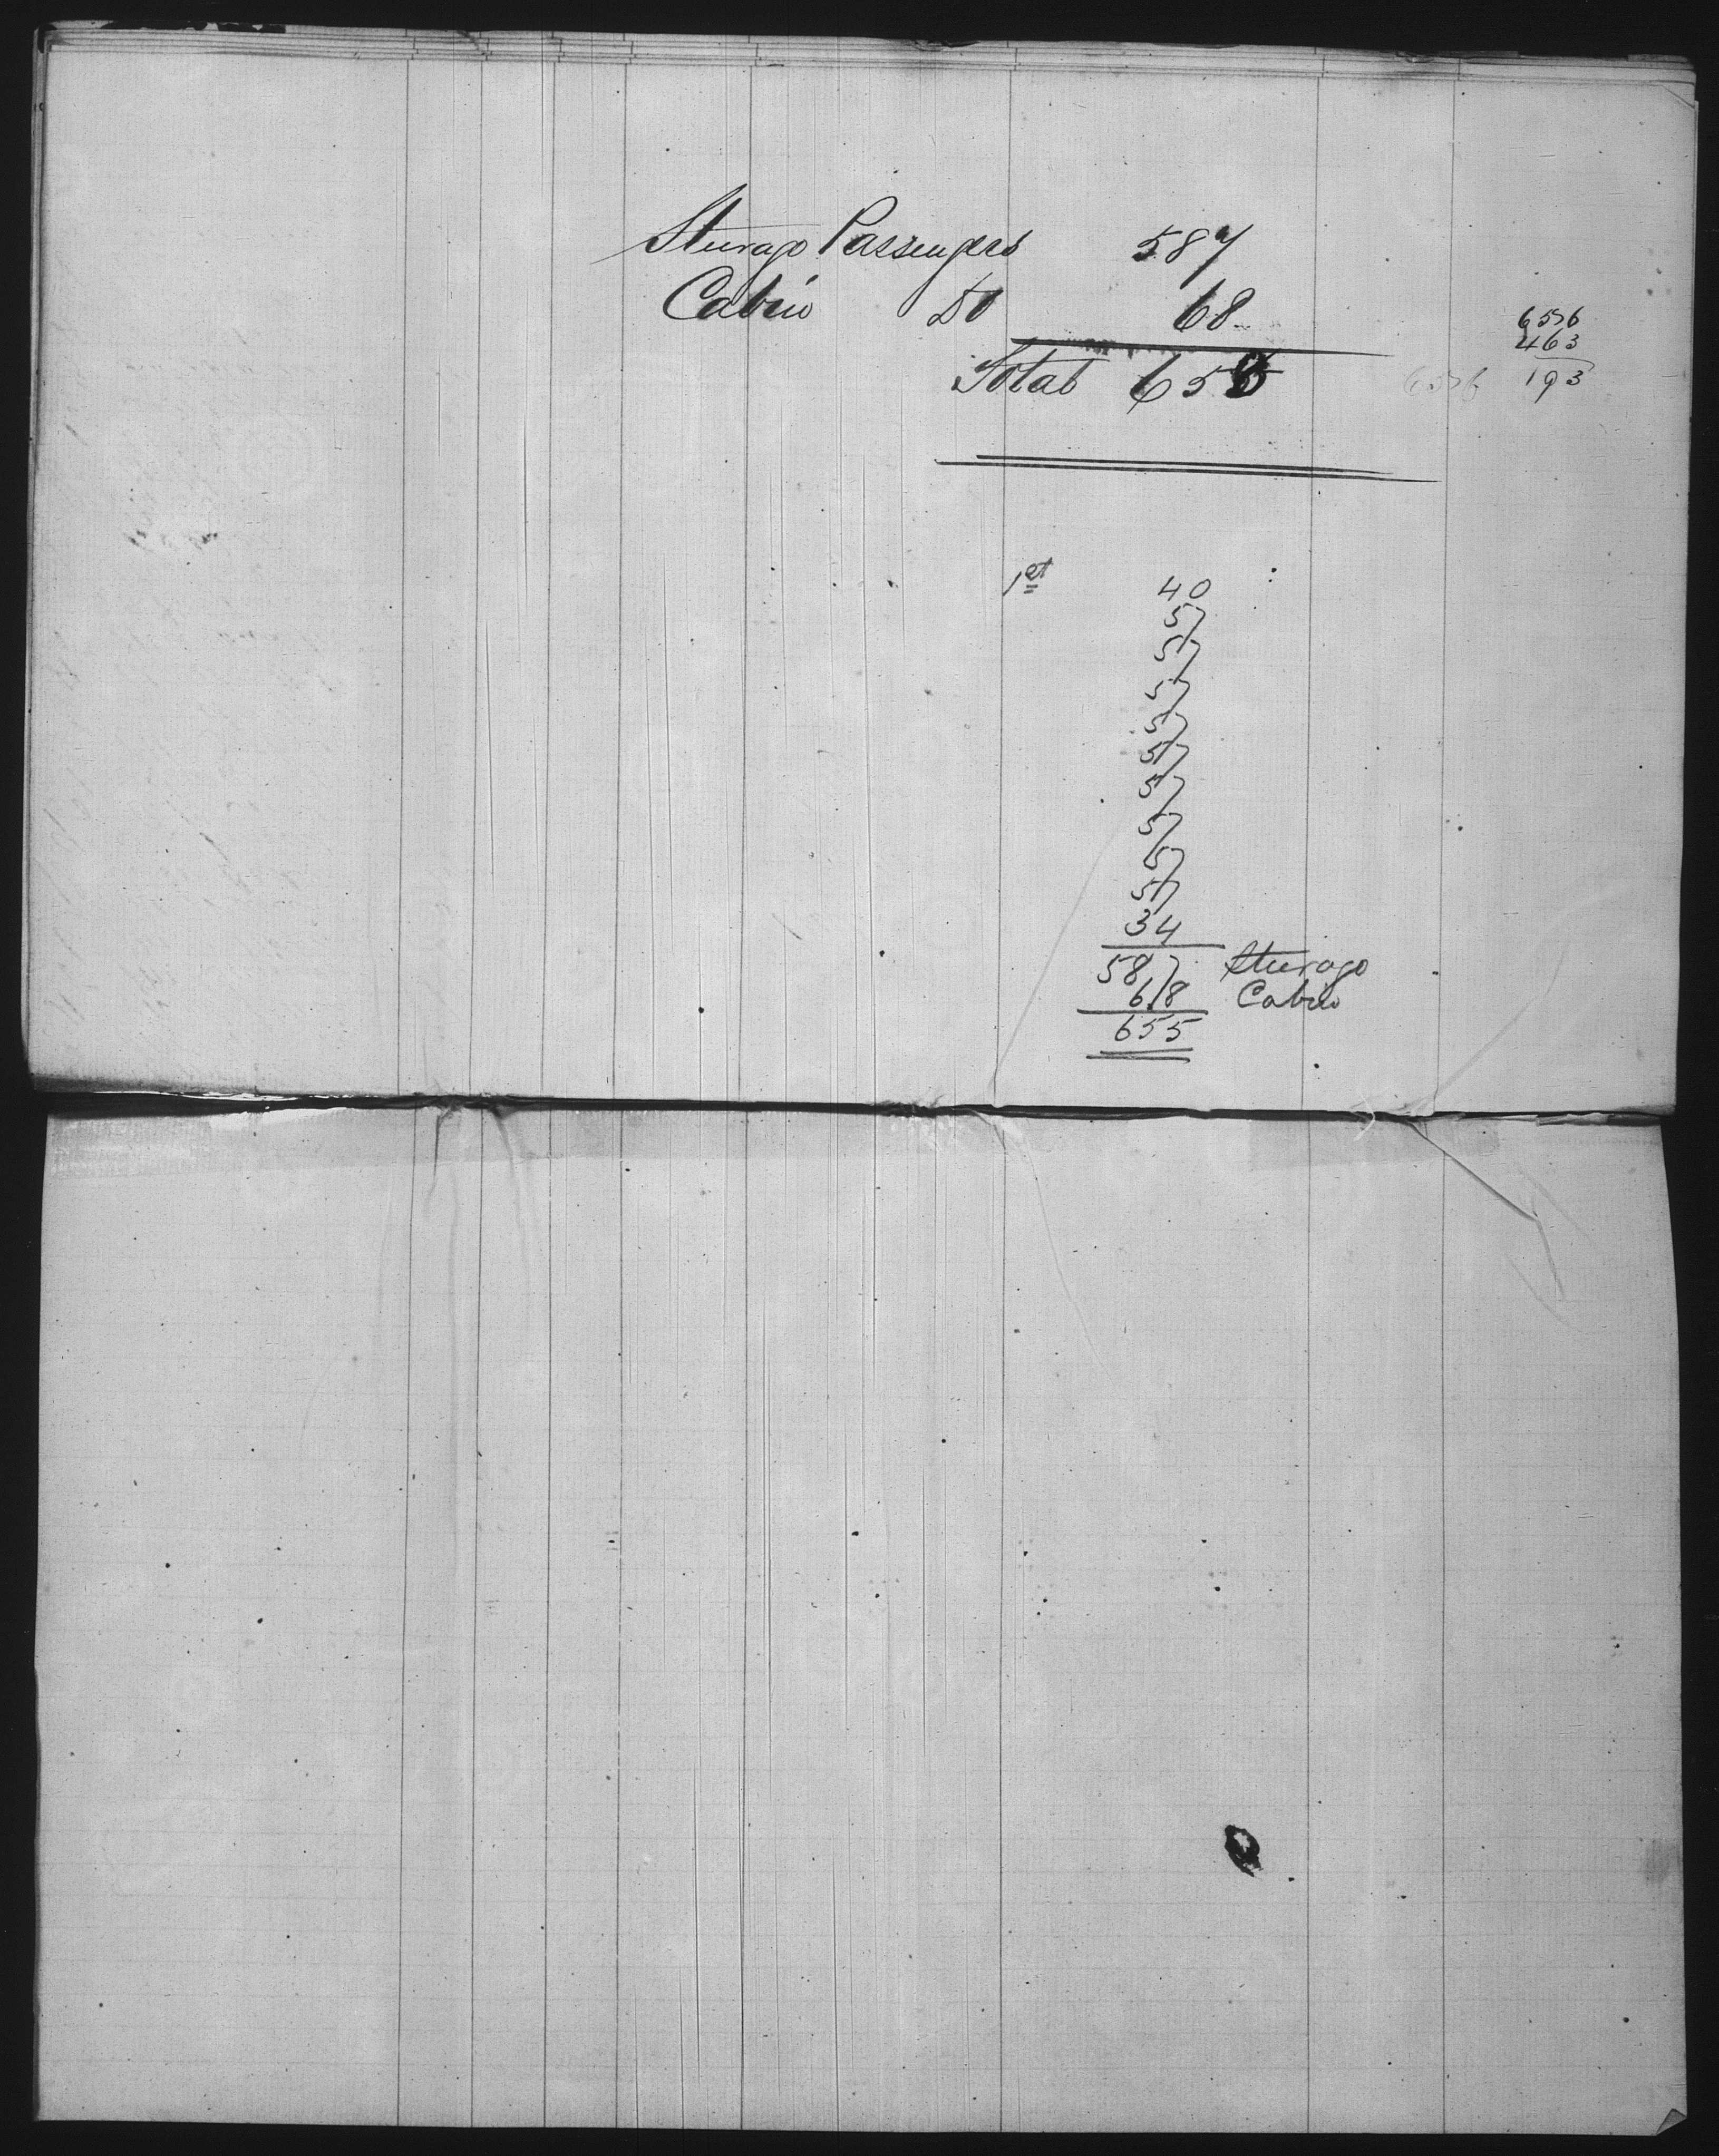 Steerage Passengers 587
Cabin Do 68
Total 655
656
463
656 193
1st 40
57
57
57
57
57
57
57
57
57
34
587 Steerage
68 Cabin
655